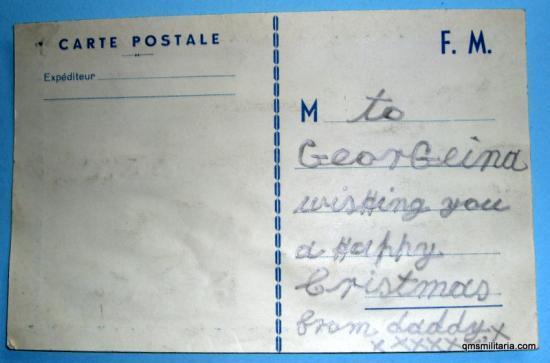 CARTE POSTALE
Expéditeur
F. M.
M to
GeorGeina
wisHing you
a Happy
Cristmas
from daddy x
xxxxx
qmsmilitaria.com